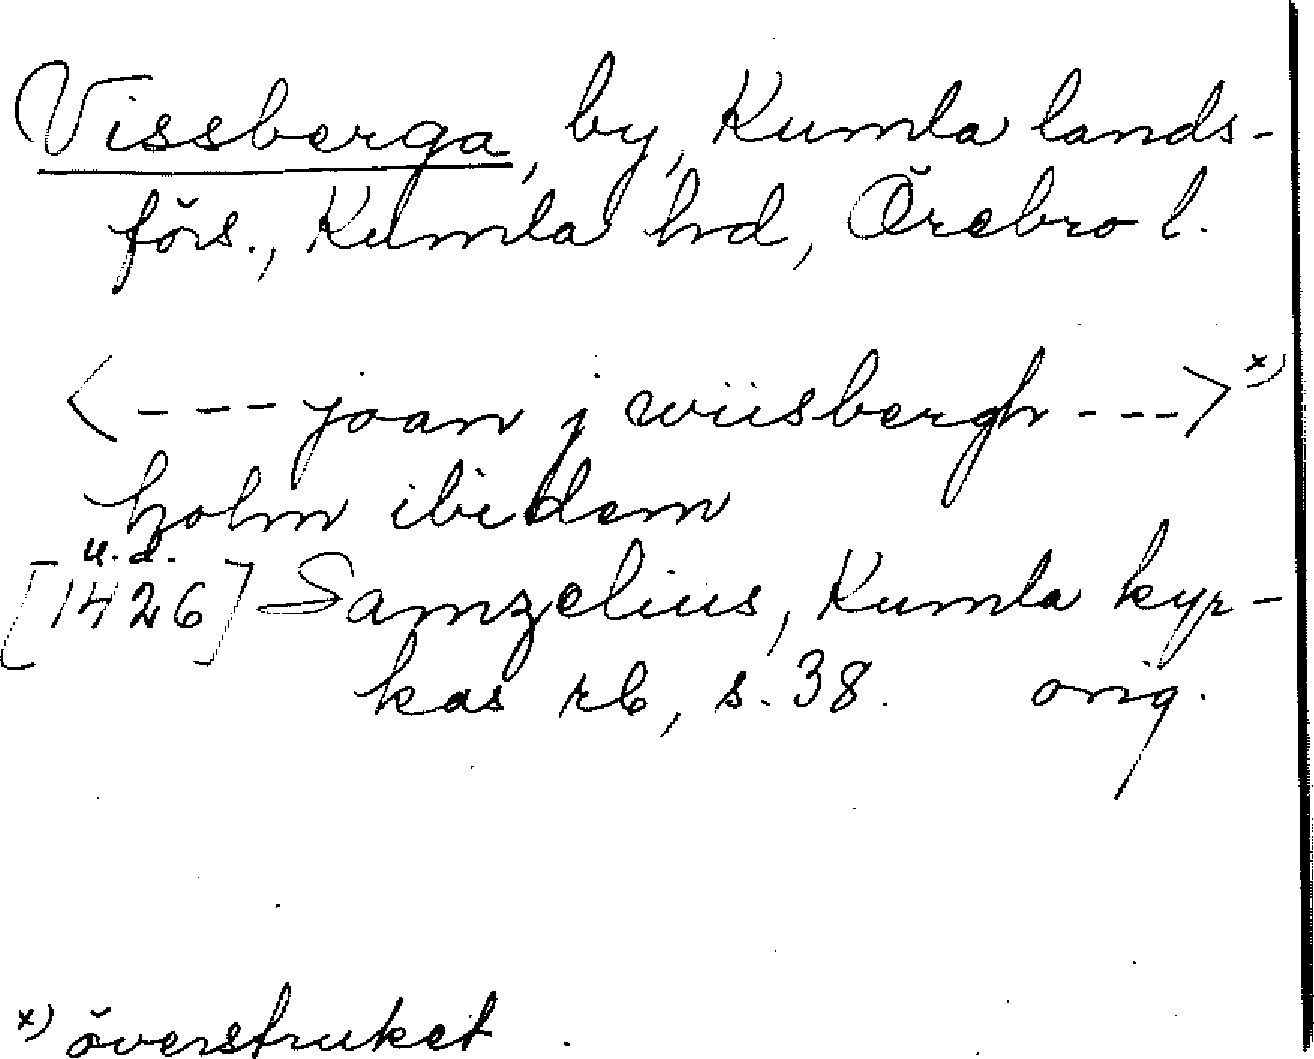 Vissberga, by, Kumla lands-
förs., Kumla hd, Örebro l.
<--- joan j wiisbergh --->x)
holm ibidem
u. d.
[1426] Samzelius, Kumla kyr-
kas rb, s. 38. orig.
x) överstruket